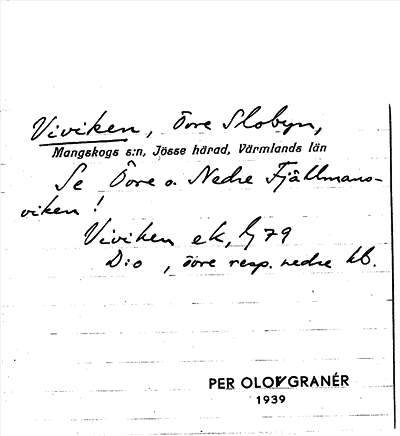 Viviken, Övre Slobyn,
Mangskogs s:n, Jösse härad, Värmlands län
Se Övre o. Nedre Fjällmans-
viken!
Viviken ek, 79
D:o , övre resp. nedre hb.
PER OLOV GRANÉR
1939